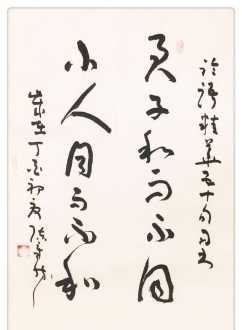 论语精华五十句
君子和而不同
小人同而不和
岁在丁酉初夏